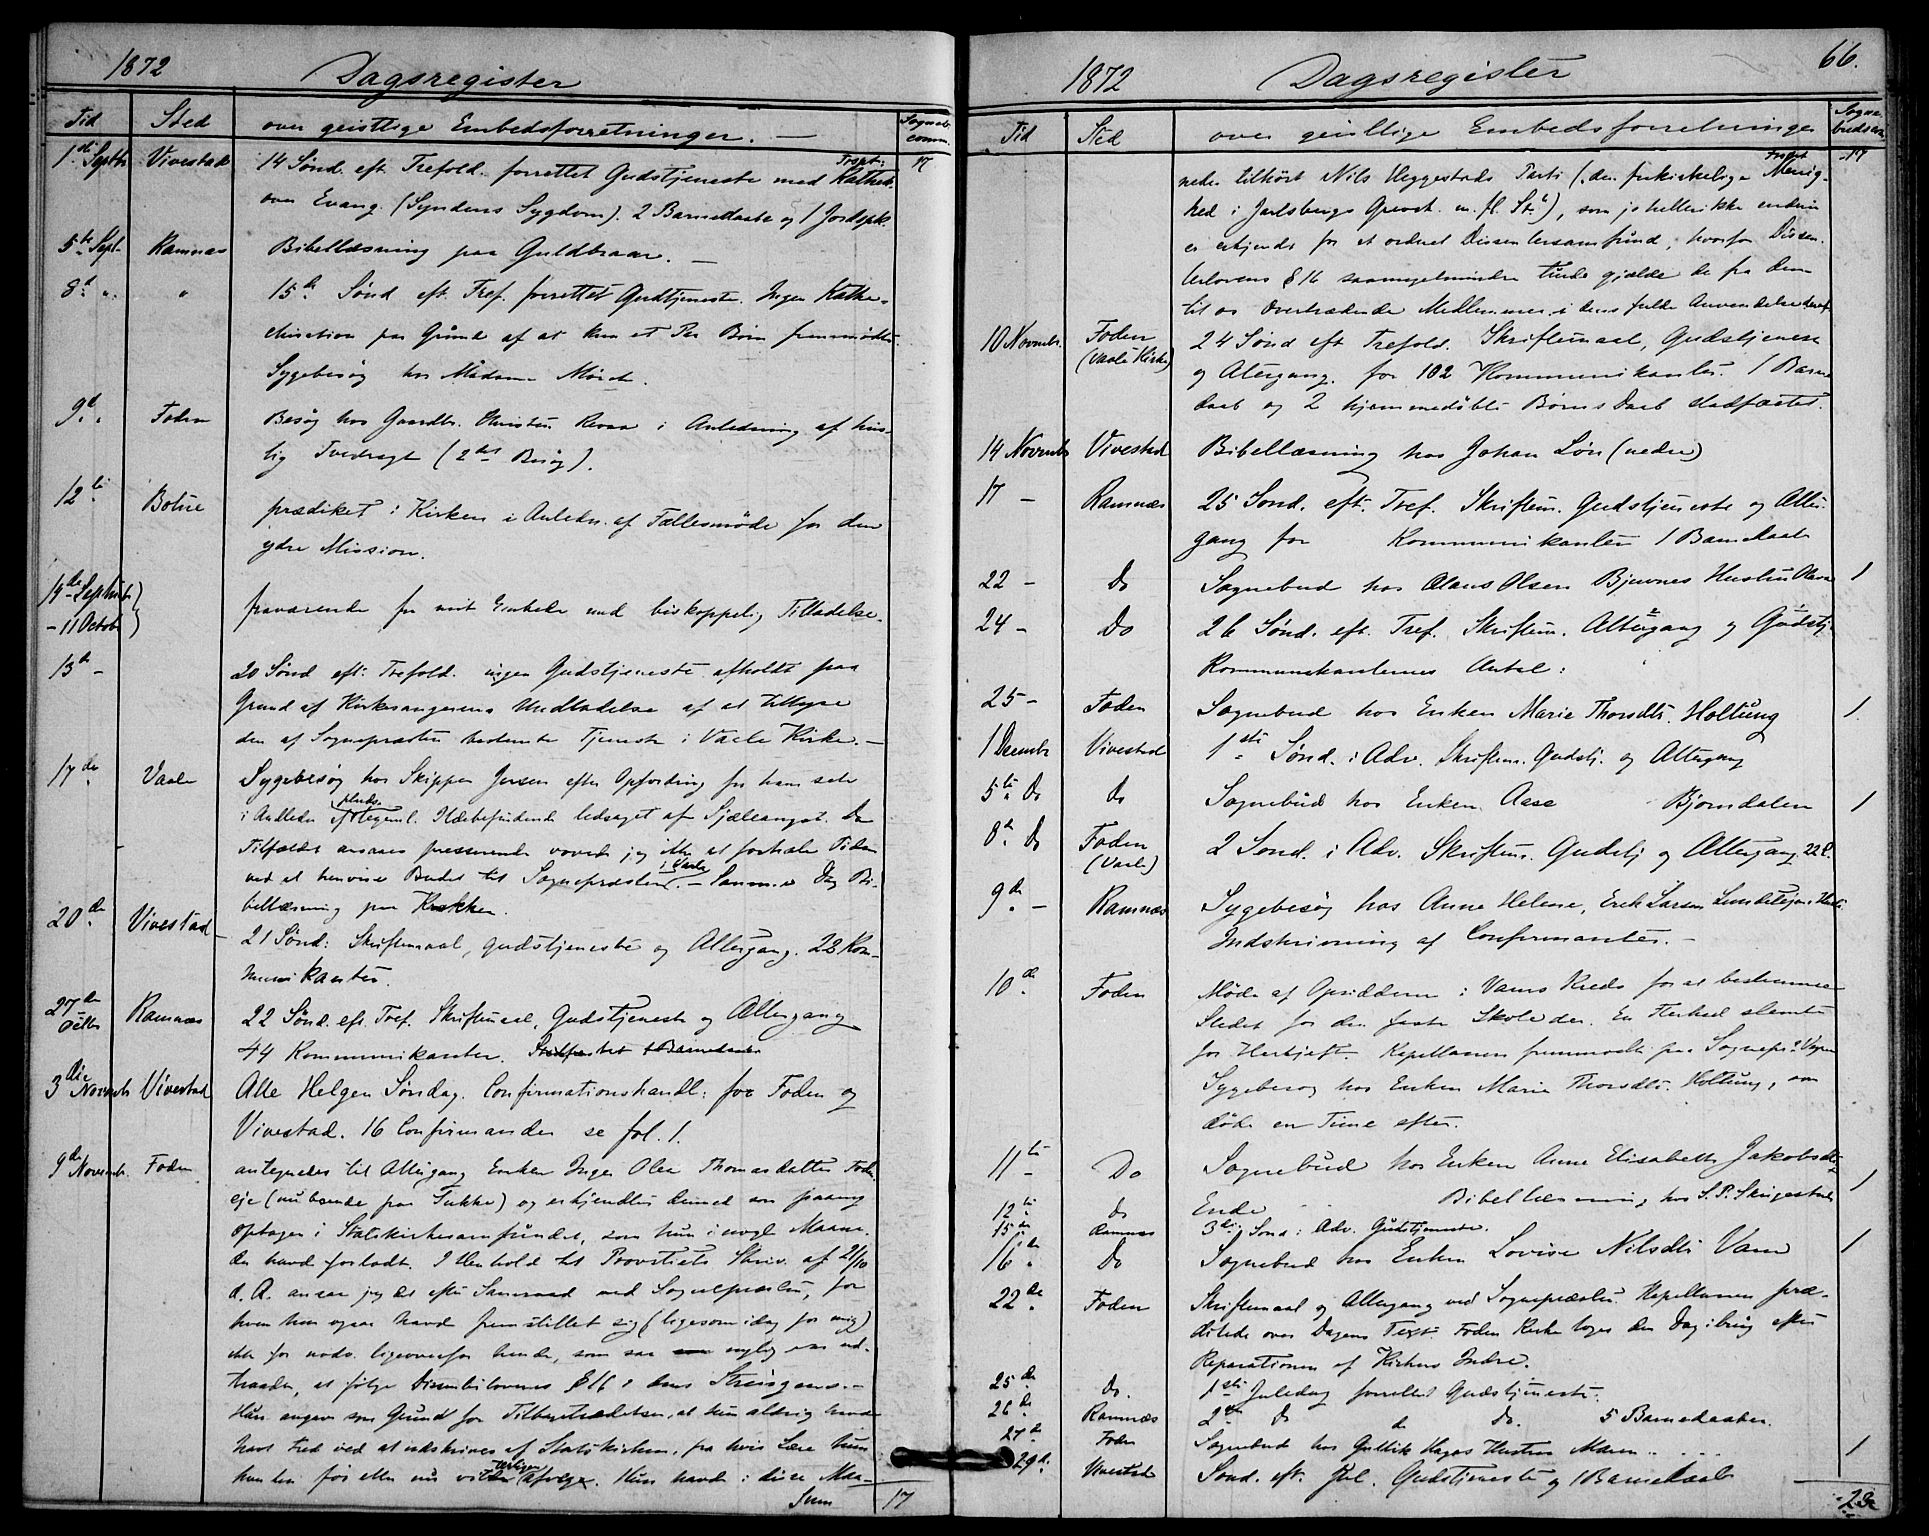 1872
Dagsregister
Tid Sted over geistlige Embedsforretninger. — Sogneb. comm.
1ste Septbr Vivestad 14 Sønd. eft. Trefold. forrettet Gudstjeneste med Kathek. Trspt: 17
over Evang. (Syndens Sygdom). 2 Barnedaabe og 1 Jordspk.
5te Sept. Ramnæs Bibellæsning paa Guldkraar. —
8de " " 15de Sønd eft. Tref. forrettet Gudtjeneste. Ingen Kathe-
chisation paa Grund af at kun et Par Børn fremmødte.
Sygebesøg hos Madame Mörch.
9de " Foden Besøg hos Gaardbr. Christen Revaa i Anledning af hus-
lig Tvedragt (2det Besøg).
12te Botne prædiket i Kirken i Anledn. af Fællesmøde for den
ydre Mission.
14de Septembr
- 11 Octobr fraværende fra mit Embede med biskoppelig Tilladelse.
13de - 20 Sønd eft. Trefold. ingen Gudstjeneste afholdt paa
Grund af Kirkesangerens Undladelse af at tillyse
den af Sognepresten bestemte Tjeneste i Vaale Kirke. —
17de Vaale Sygebesøg hos Skipper Jensen efter Opfordring fra ham selv
i Anledn. af pluds. legeml. Ildebefindende ledsaget af Sjæleangst. Da
Tilfældet ansaaes presserende vovede jeg ikke at forhale Tiden
ved at henvise Budet til Sognepræsten i Vaale. — Samme Dag Bi-
bellæsning paa Krokken.
20de Vivestad 21 Sønd: Skriftemaal, Gudstjeneste og Altergang. 22 Kom-
munikanter.
27de Octbr Ramnæs 22 Sønd. eft. Tref. Skriftemaal, Gudstjeneste og Altergang
44 Kommunikanter. Stadfæstet 1 Barnedaab
3die Novembr Vivestad Alle Helgen Søndag. Confirmationshandl: for Foden og
Vivestad. 16 Confirmander se fol. 1.
9de Novembr. Foden antegnedes til Altergang Enken Inger Olea Thomasdatter Foden
eje (nu boende paa Sukke) og erkjendtes dermed som paany
optagen i Statskirkesamfundet, som hun i nogle Maane-
der havde forladt. I Henhold til Provstiets Skriv. af 21/10
d. A. ansaa jeg det efter Samraad med Sognepræsten, for
hvem hun ogsaa havde fremstillet sig (ligesom idag for mig)
ikke for nødv. ligeoverfor hende, som saa nylig var ud-
traadt, at følge Dissenterlovens § 16 i dens Strengens. —
Hun angav som Grund for Tilbagetrædelsen, at hun aldrig havde
havt Fred ved at udskrives af Statskirken, fra hvis Lære hun
hverken før eller nu vilde afvige. Hun havde i disse Maa-
Sum 17

1872 Dagsregister 66.
Tid Sted over geistlige Embedsforretninger Sogne-budsbes.
neder tilhørt Nils Heggestads Parti ("den frikirkelige Menig- Trspt 17
hed i Jarlsbergs Grevsk. m. fl. St."), som jo heller ikke endnu
er erkjendt for et ordnet Dissentersamfund, hvorfor Dissen-
terlovens § 16 saameget mindre turde gjælde de fra dem
til os Overtrædende Medlemmer i dens fulde Anvendelse
10 Novembr. Foden (Vaale Kirke) 24 Sønd eft Trefold. Skriftemaal, Gudstjeneste
og Altergang. for 102 Kommunikanter. 1 Barne
daab og 2 hjemmedøbte Børns Daab stadfæstet.
14 Novembr Vivestad Bibellæsning hos Johan Lön (nedre)
17 — Ramnæs 25 Sønd. eft. Tref. Skriftem. Gudstjeneste og Alter-
gang for Kommunikanter 1 Barnedaab
22 — Do Sognebud hos Claus Olsen Bjerunes Hustru Maren 1
24 — Do 26 Sønd. eft. Tref. Skriftem. Altergang og Gudstj.
Kommunikanternes Antal:
25 — Foden Sognebud hos Enken Marie Thorsdtr. Holtung 1.
1 Decembr Vivestad 1ste Sønd. i Adv. Skriftem. Gudstj. og Altergang
5te Do Do Sognebud hos Enken Aase Bjørndalen 1
8de Do Foden (Vaale) 2 Sønd. i Adv. Skriftem. Gudstj og Altergang. 22 C.
9de — Ramnæs Sygebesøg hos Anne Helene, Erik Larsen Lundtejens Hust.
Indskrivning af Confirmanter. —
10de Foden Møde af Opsidderne i Vams Kreds for at bestemme
Stedet for den faste Skole der. En Flerhed stemte
for Hertjeft. Kapellanen fremmødte paa Sognepr. Vegne
Sygebesøg hos Enken Marie Thorsdtr. Holtung, som
døde en Time efter.
11te — Do Sognebud hos Enken Anne Elisabeth Jakobsdtr 1
Ende
12te Do Bibellæsning hos S. P. Skingestad
15de Ramnæs 3die Sønd i Adv. Gudstjeneste.
16de Do Sognebud hos Enken Lovise Nilsdtr Vam 1
22de Foden Skriftemaal og Altergang ved Sognepræsten. Kapellanen præ-
dikede over Dagens Text. Foden Kirke toges den Dag i brug efter
Reparationen af Kirkens Indre.
25de Do. 1ste Juledag forrettet Gudstjeneste.
26de Ramnæs 2den Do do Do. 5 Barnedaaber.
27de Foden Sognebud hos Gullik Hages Hustru Maren . . . . . 1
29de Vivestad Sønd. eft. Jul. Gudstjeneste og 1 Barnedaab
23